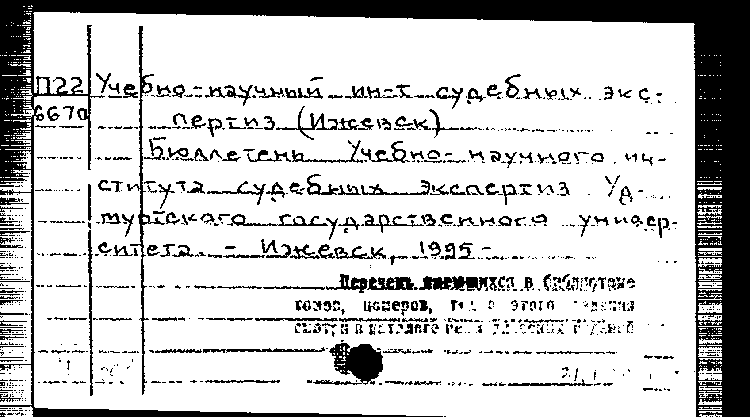 П22 Учебно-научный ин-т судебных экс-
6670 пертиз (Ижевск)
Бюллетень Учебно-научного ин-
ститута судебных экспертиз Уд-
муртского государственного универ-
ситета. - Ижевск, 1995-
Перечень имеющихся в библиотеке
томов, номеров, этого издания
смотри в каталоге